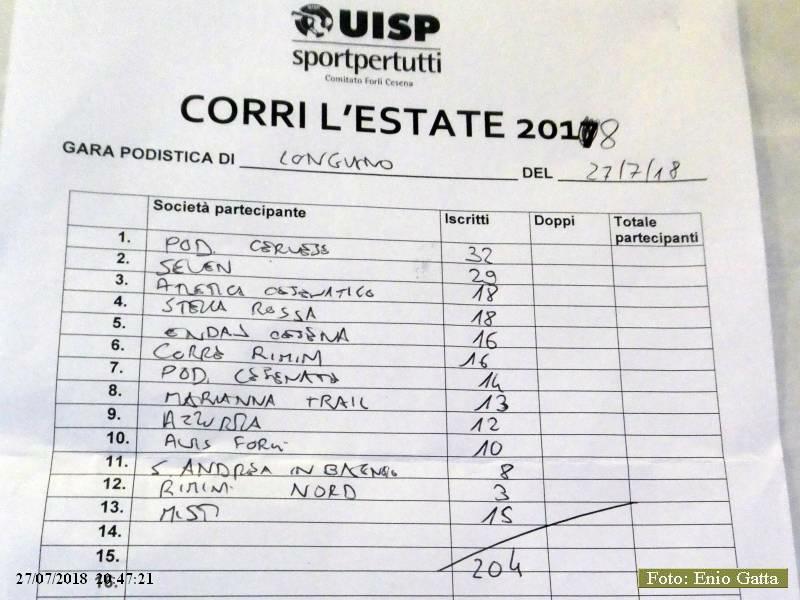 UISP
sportpertutti
Comitato Forlì Cesena
CORRI L'ESTATE 2018
GARA PODISTICA DI LONGIANO DEL 27/7/18
Società partecipante Iscritti Doppi Totale partecipanti
1. POD. CERVESE 32
2. SEVEN 29
3. ATLETICA CESENATICO 18
4. STELLA ROSSA 18
5. ENDAS CESENA 16
6. CORRE RIMINI 16
7. POD. CESENATE 14
8. MARIANNA TRAIL 13
9. AZZURRA 12
10. AVIS FORLI 10
11. S. ANDREA IN 8
12. RIMINI NORD 3
13. MISTI 15
14.
15. 204
16.
27/07/2018 20:47:21
Foto: Enio Gatta